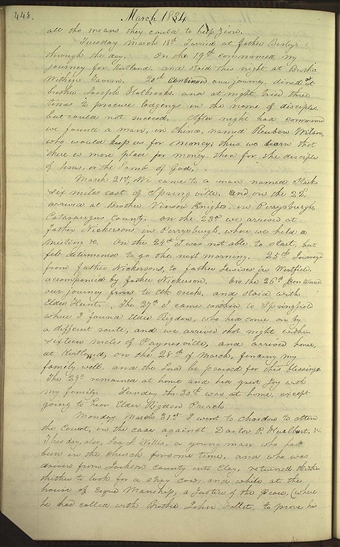 448.
March 1834
all the means they could to help Zion.
Tuesday March 18th Tarried at father
through the day. On the 19th commenced my
journey for Kirtland and tarried this night at
tavern. 20th continued our journey, dined at
brother Joseph and at night tried three
times to procure lodgings in the name of disciples
but could not succeed. After night had commenced
we found a man, in China, named Reuben Wilson,
who would keep us for money; thus we learn that
there is more place for money than for the disciples
of Jesus, or the Lamb of God.
March 21st We came to a man named Starks
six miles east of and on the 22d
arrived at Brother Vinson Knights, in Perrysburgh
County. On the 23d we arrived at
father Nickersons, in Perrysburgh, where we held a
meeting &c. On the 24th I was not able to start, but
felt determined to go the next morning. 25th Journey
from father Nickersons, to father in Westfield,
accompanied by father Nickerson. On the 26th continued
our journey to Elk creek, and staid with
Elder Hunt. The 27th I came to Springfield
where I found Elder Rigdon, who had come on by
a different route, and we arrived that night within
sixteen miles of Paynesville, and arrived home,
at Kirtland, on the 28th of March, finding my
family well, and the Lord be praised for this blessing.
The 29th remained at home and had great Joy with
my family. Sunday the 30th was at home, except
going to hear Elder Rigdon Preach.
Monday March 31st I went to Chardon to attend
the Court, in the case against Doctor P. Hurlburt, &c.
This day, also, Ira J. Willis, a young man who had
been in the church for some time, and who was
driven from Jackson county into Clay, returned
thither to look for a stray Cow, and while at the
house of Esqr. Manship, a Justice of the Peace, (where
he had called with Brother John to prove his